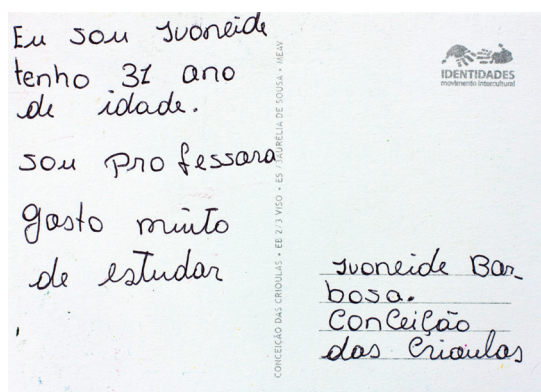 Eu sou Ivoneide
tenho 31 ano
de idade.
sou professara
gosto muito
de estudar
CONCEIÇÃO DAS CRIOULAS • EB 2/3 VISO • ES AURÉLIA DE SOUSA • MEAV
IDENTIDADES
movimento intercultural
Ivoneide Bar_
bosa.
Conceição
das Crioulas